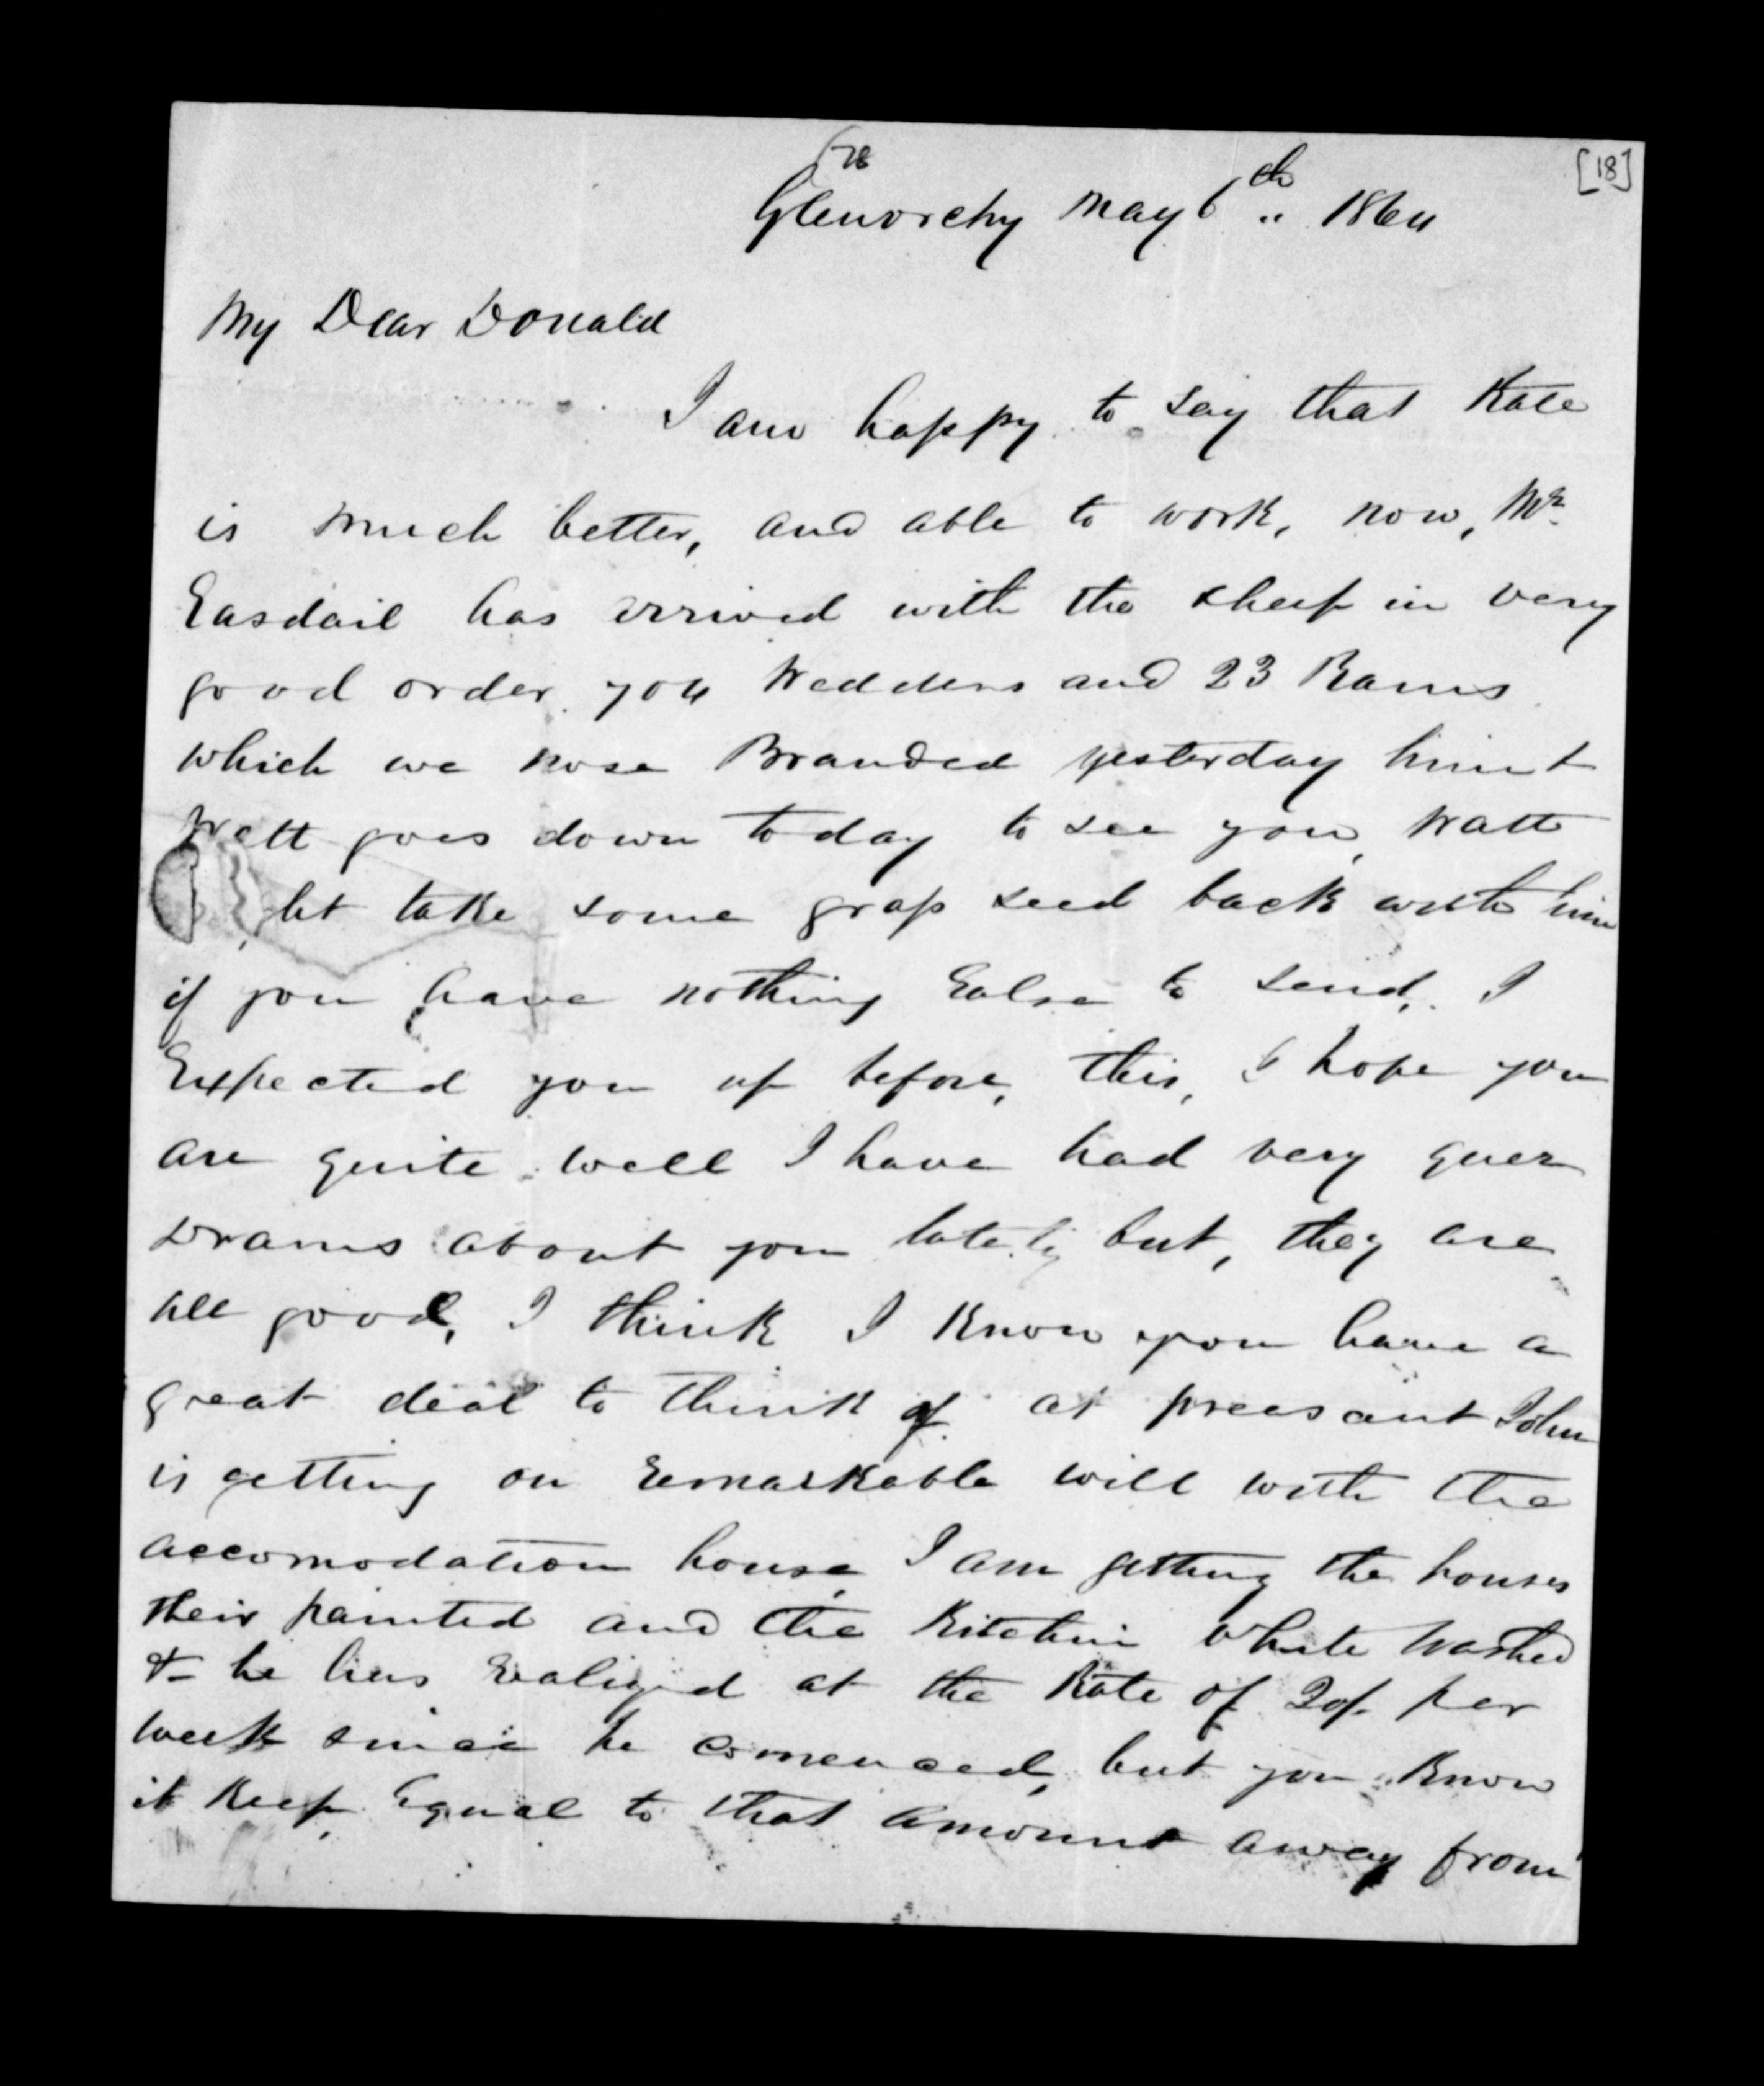 [18]
Glenorchy May 6th 1864
My Dear Donald
I am happy to say that Kate
is much better, and able to work, now, Mr
Easdail has arrived with the sheep in very
good order, 704 Wedders and 23 Rams
which we nose Branded yesterday
Watt goes down today to see you, Watt
let take some grass seed back with him
if you have nothing Ealse to send, I
Expected you up before, this, I hope you
are quite well I have had very queer
Drams about you lately but, they are
all good, I think I know you have a
great deal to think of at preesant John
is getting on remarkable will with the
accomodation house, I am getting the houses
their painted and the Kitchin white washed
& he has realized at the Rate of 20/- per
week since he comenced, but you know
it keep, Equal to that amount away from